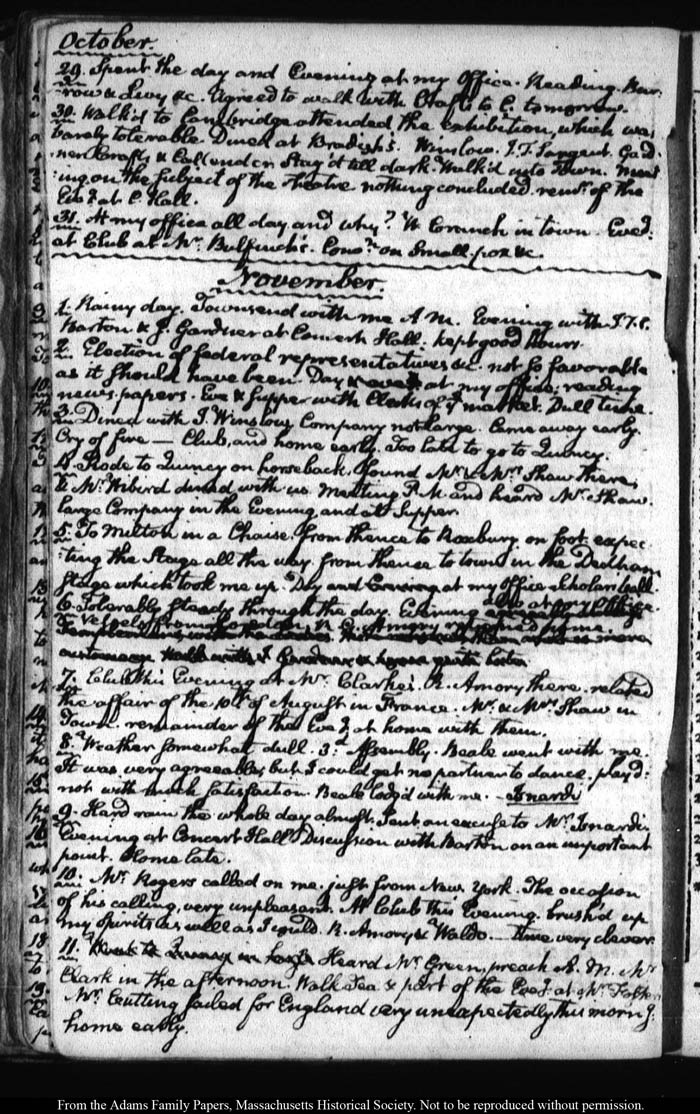 October.
29. Spent the day and Evening at my Office. Reading. Bar-
row & Livy &c. Agreed to walk with Crafts to C. tomorrow.
30. Walk'd to Cambridge attended the exhibition, which was
barely tolerable. Dined at Bradish's. Winslow. J. T. Sargent. Gard-
ner Crafts & Callender. Stay'd till dark. Walk'd into Town. Meet-
:ing on the subject of the Theatre nothing concluded. remr. of the
Eveg. at C. Hall.
31. At my office all day, and why? W. Cranch in town. Eveg.
at Club at Mr. Bulfinch's. Convn. on Small-pox &c.
November.
1. Rainy day. Townsend with me A.M. Evening with
Barton & J. Gardner at Concert Hall. kept good hours.
2. Election of federal representatives &c. not so favorable
as it should have been. Day at my office, reading
news-papers. Eve & Supper with Clerks of ye market. Dull time.
3. Dined with J. Winslow, Company not large. Came away early.
Cry of fire — Club, and home early. Too late to go to Quincy.
4. Rode to Quincy on horseback. Found Mr. & Mrs. Shaw there,
& Mr. Wibird dined with us. Meeting P.M and heard Mr. Shaw.
large Company in the Evening and at Supper.
5. To Milton in a Chaise. from thence to Roxbury on foot. expec-
:ting the Stage all the way. from thence to town in the Dedham
Stage which took me up. Day at my Office.
6. Tolerably steady through the day. Evening
at home.
7. Club this Evening at Mr. Clarke's. R. Amory there. related
the affair of the 10th. of August in France. Mr. & Mrs. Shaw in
Town. remainder of the Eveg. at home with them.
8. Weather somewhat dull. 3d. Assembly. Beale went with me.
It was very agreeable, but I could get no partner to dance. play'd:
not with much satisfaction. Beale lodg'd with me.
9. Hard rain the whole day almost. Sent an excuse to Mr.
Evening at Concert Hall. Discussion with Barton on an important
point. Home late.
10. Mr. Rogers called on me. just from New York. The occasion
of his calling, very unpleasant. At Club this Evening. brush'd up
my spirits as well as I could. R. Amory & Waldo. — time very clever.
11. Heard Mr. Green, preach A.M. Mr.
Clark in the afternoon. Walk Tea & part of the Eveg. at Mr. Foster
Mr. Cutting sailed for England very unexpectedly this morng.
home early.
From the Adams Family Papers, Massachusetts Historical Society. Not to be reproduced without permission.